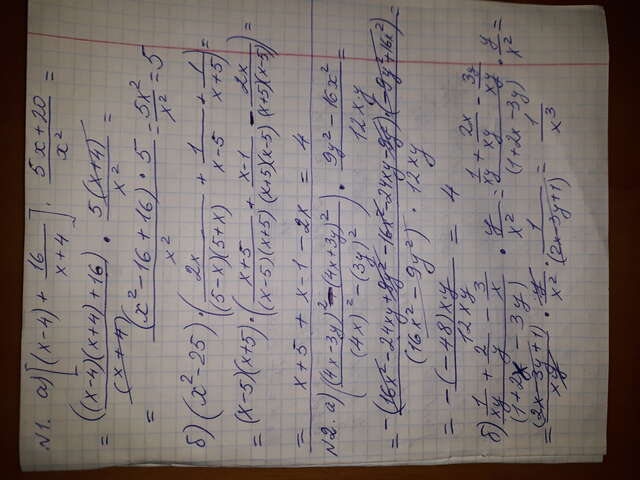 №1. а) [(x-4) + 16/(x+4)] · (5x+20)/x² =
= ((x-4)(x+4)+16)/(x+4) · 5(x+4)/x² =
= (x²-16+16)·5/x² = 5x²/x² = 5
б) (x²-25)·(2x/((5-x)(5+x)) + 1/(x-5) + 1/(x+5)) =
= (x-5)(x+5)·((x+5)/((x-5)(x+5)) + (x-1)/((x+5)(x-5)) - 2x/((x+5)(x-5))) =
= x+5 + x-1 - 2x = 4
№2. а) (((4x-3y)² - (4x+3y)²)/((4x)² - (3y)²)) · (9y²-16x²)/(12x·y) =
= -(16x²-24xy+9y²-16x²-24xy-9y²)·(-9y²+16x²)/((16x²-9y²)·12xy) =
= -(-48)x·y/(12xy) = 4
б) (1/(xy) + 2/y - 3/x)/(1+2x-3y) · y/x² = (1/(xy) + 2x/(xy) - 3y/(xy))/(1+2x-3y) · y/x² =
= (2x-3y+1)/(xy) · y/x² · 1/(2x-3y+1) = 1/x³